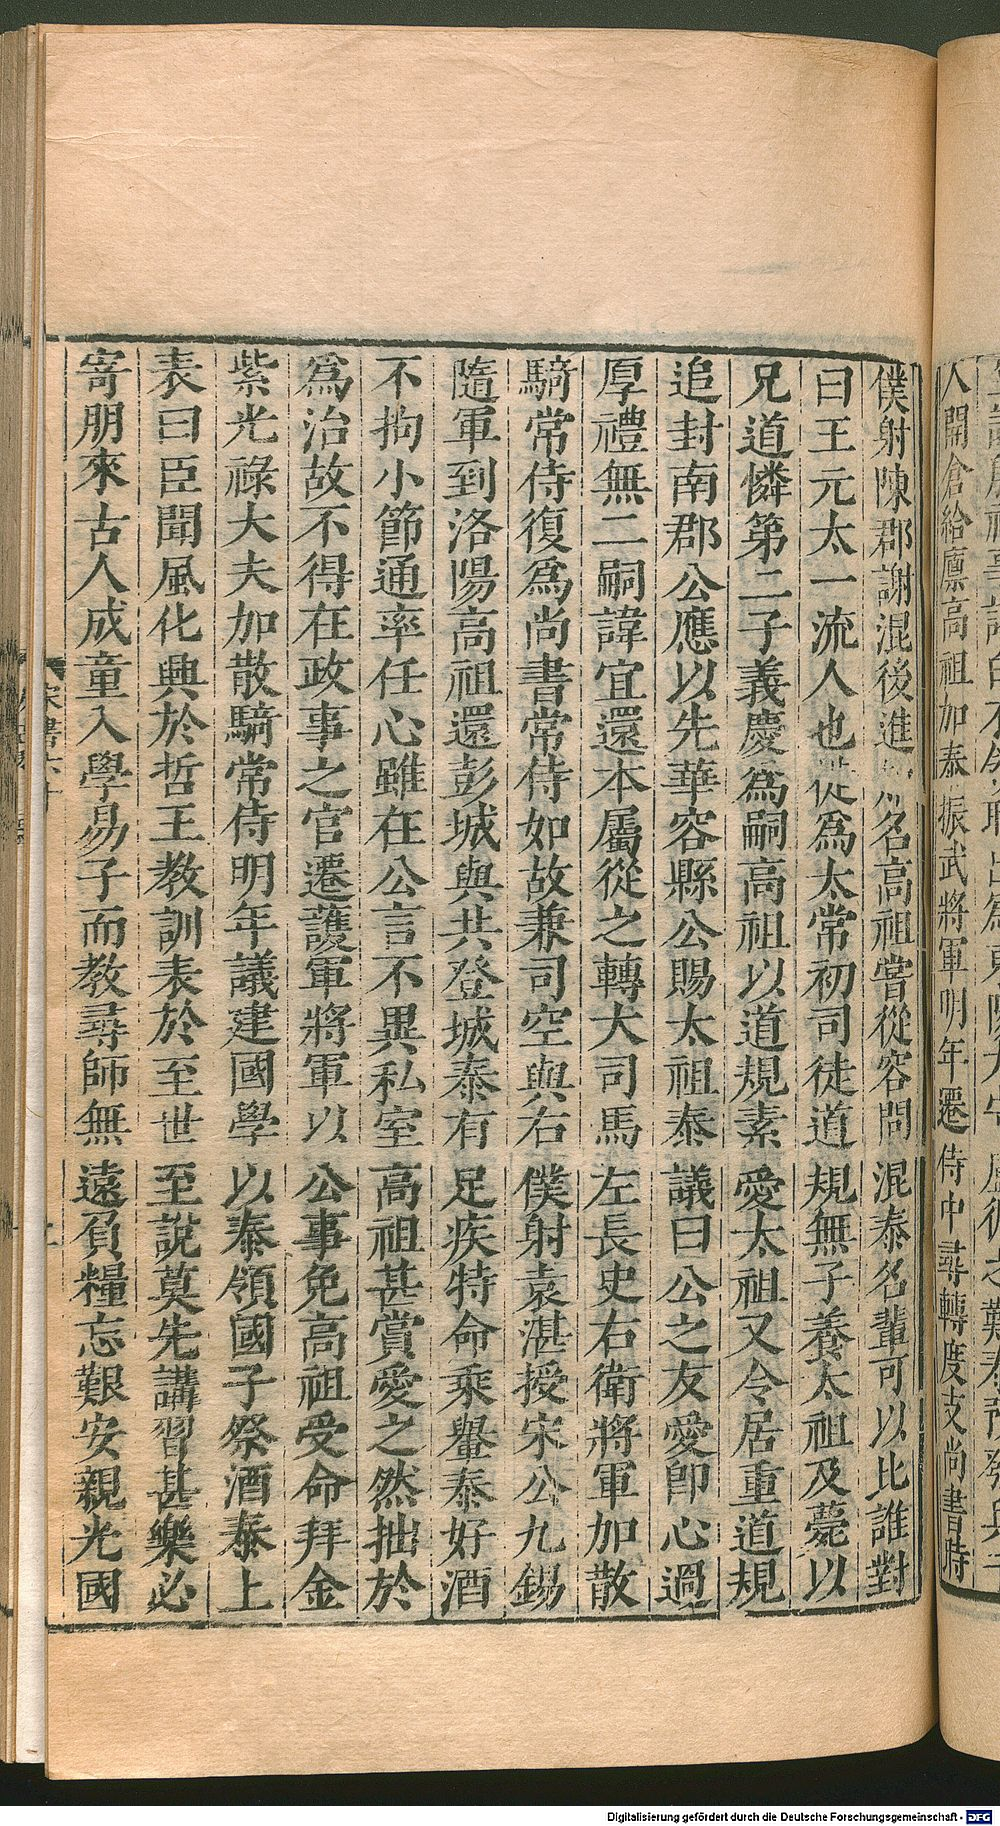 人開倉給稟高祖加泰振武將軍明年遷侍中尋轉度支尚書時
僕射陳郡謝混後進 名高祖嘗從容問混泰名輩可以比誰對
曰王元太一流人也徙爲太常初司徒道規無子養太祖及薨以
兄道憐第二子義慶爲嗣高祖以道規素愛太祖又令居重道規
追封南郡公應以先華容縣公賜太祖泰議曰公之友愛卽心過
厚禮無二嗣諱宜還本屬從之轉大司馬左長史右衛將軍加散
騎常侍復爲尚書常侍如故兼司空與右僕射袁湛授宋公九錫
隨軍到洛陽高祖還彭城與共登城泰有足疾特命乘轝泰好酒
不拘小節通率任心雖在公言不異私室高祖甚賞愛之然拙於
爲治故不得在政事之官遷護軍將軍以公事免高祖受命拜金
紫光祿大夫加散騎常侍明年議建國學以泰領國子祭酒泰上
表曰臣聞風化興於哲王教訓表於至世至說莫先講習甚樂必
寄朋來古人成童入學易子而教尋師無遠負糧忘艱安親光國
宋書六十
Digitalisierung gefördert durch die Deutsche Forschungsgemeinschaft - DFG